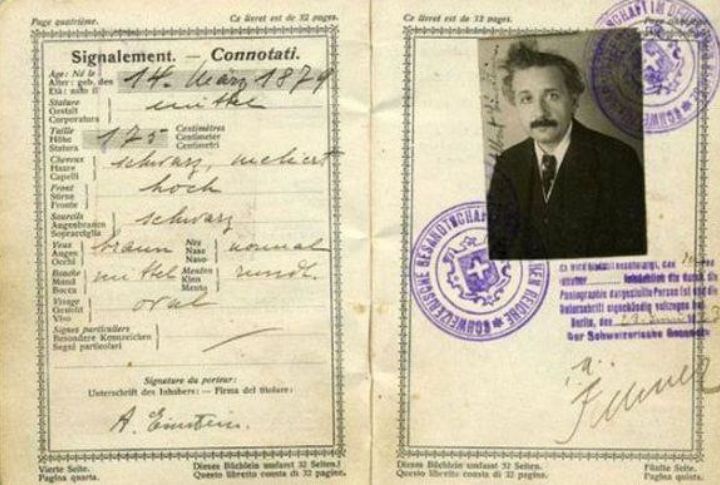 Page quatrième. Ce livret est de 32 pages.
Signalement. — Connotati.
Age: Né le
Alter: geb. den 14. März 1879
Età: nato il
Stature
Gestalt mittel
Corporatura
Taille Centimètres
Höhe 175 Centimeter
Statura Centimetri
Cheveux
Haare schwarz, meliert
Capelli
Front
Stirne hoch
Fronte
Sourcils
Augenbrauen schwarz
Sopracciglia
Yeux Nez
Augen braun Nase normal
Occhi Naso
Bouche Menton
Mund mittel Kinn rund
Bocca Mento
Visage
Gesicht oval
Viso
Signes particuliers
Besondere Kennzeichen
Segni particolari
Signature du porteur:
Unterschrift des Inhabers: — Firma del titolare:
A. Einstein.
Vierte Seite. Dieses Büchlein umfasst 32 Seiten.
Pagina quarta. Questo libretto consta di 32 pagine.
Ce livret est de 32 pages.
SCHWEIZERISCHE GESANDTSCHAFT
REICHE
Photographie dargestellte Person ist und die
Unterschrift eigenhändig vollzogen hat
Berlin, den
Der Schweizerische Gesandte
Dieses Büchlein umfasst 32 Seiten. Fünfte Seite.
Questo libretto consta di 32 pagine. Pagina quinta.